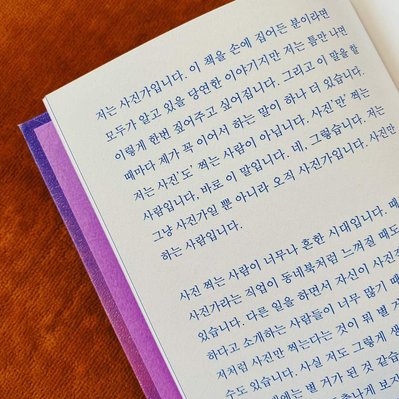 저는 사진가입니다. 이 책을 손에 집어든 분이라면
모두가 알고 있을 당연한 이야기지만 저는 틈만 나면
이렇게 한번 짚어주고 싶어집니다. 그리고 이 말을 할
때마다 제가 꼭 이어서 하는 말이 하나 더 있습니다.
저는 사진'도' 찍는 사람이 아닙니다. 사진'만' 찍는
사람입니다, 바로 이 말입니다. 네, 그렇습니다. 저는
그냥 사진가일 뿐 아니라 오직 사진가입니다. 사진만
하는 사람입니다.
사진 찍는 사람이 너무나 흔한 시대입니다. 때
사진가라는 직업이 동네북처럼 느껴질 때도
있습니다. 다른 일을 하면서 자신이 사진
하다고 소개하는 사람들이 너무 많기 때
저처럼 사진만 찍는다는 것이 뭐 별 거
수도 있습니다. 사실 저도 그렇게 생
에는 별 거가 된 것 같습